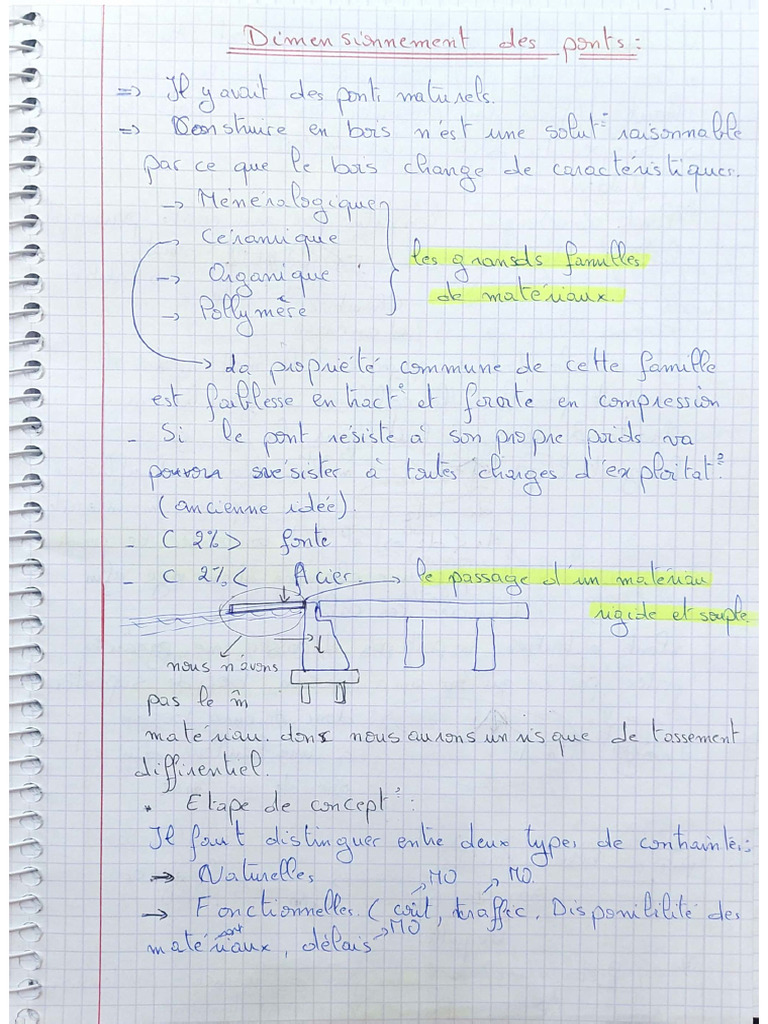 Dimensionnement des ponts :
=> Il y avait des ponts naturels.
=> Construire en bois n'est une solut° raisonnable
par ce que le bois change de caractéristiques.
-> Minéralogique
Céramique
-> Organique
-> Pollymère
les gransds familles
de matériaux.
-> La propriété commune de cette famille
est faiblesse en tract° et forate en compression
- Si le pont résiste à son propre poids va
pouvoir résister à toutes charges d'exploitat°.
(ancienne idée).
- C 2% > fonte
- C 2% < Acier. -> le passage d'un matériau
rigide et souple.
nous n'avons
pas le m̂
matériau. donc nous aurons un risque de tassement
diffirentiel.
• Etape de concept° :
Il faut distinguer entre deux types de contraintes :
-> Naturelles
MO MO.
-> Fonctionnelles. ( coût, traffic, Disponibilité des
matériaux, délais MO